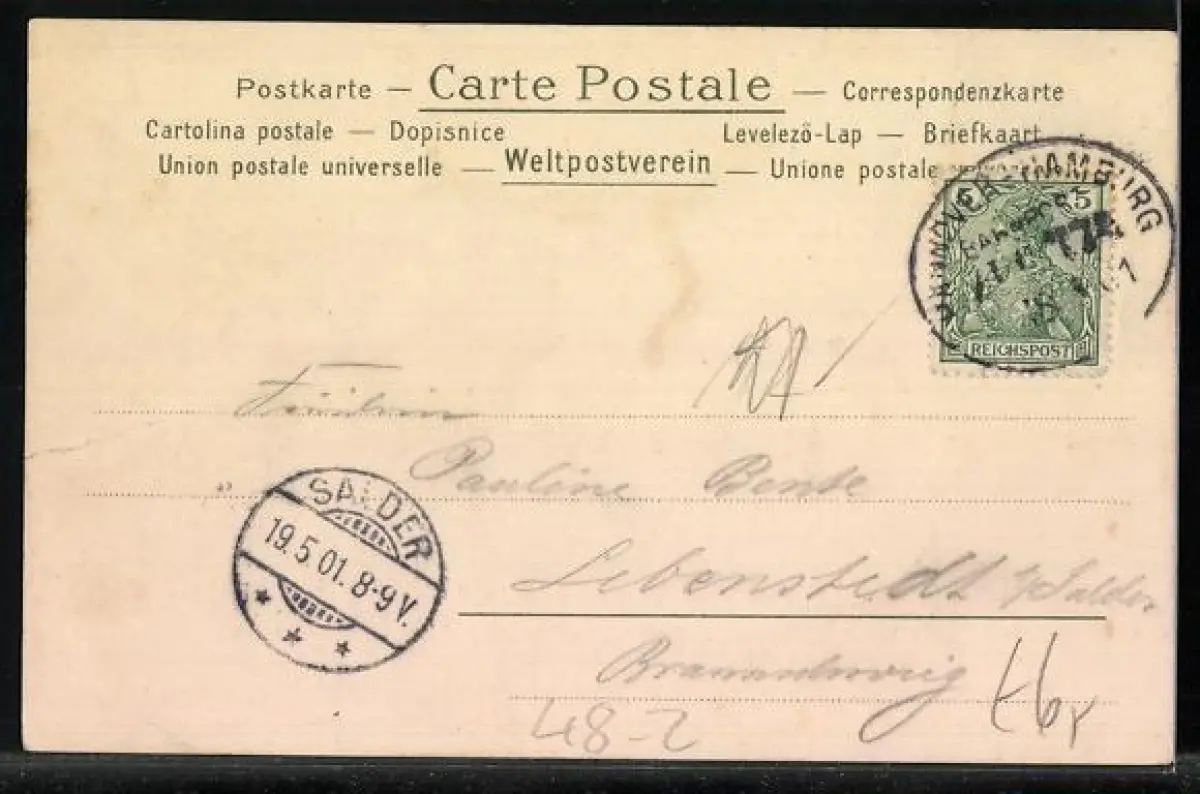 Postkarte — Carte Postale — Correspondenzkarte
Cartolina postale — Dopisnice Levelező-Lap — Briefkaart
Union postale universelle — Weltpostverein — Unione postale
HANNOVER - HAMBURG
BAHNPOST
5 5
REICHSPOST
Fräulein
Pauline Bente
SALDER
19.5.01. 8-9 V.
Lebenstedt b/Salder
Braunschweig
48-2